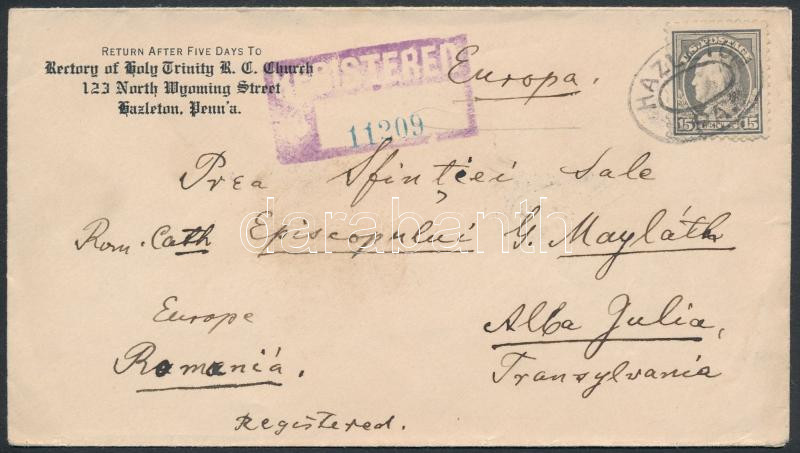 RETURN AFTER FIVE DAYS TO
Rectory of Holy Trinity R. C. Church
123 North Wyoming Street
Hazleton, Penn'a.
REGISTERED
11209
Europa.
HAZLETON
PA.
U.S. POSTAGE
15 CENTS 15
Prea Sfinţiei Sale
Rom. Cath Episcopului G. Mayláth
darabanth
Europe
Alba Julia,
Romaniá.
Transylvania
Registered.